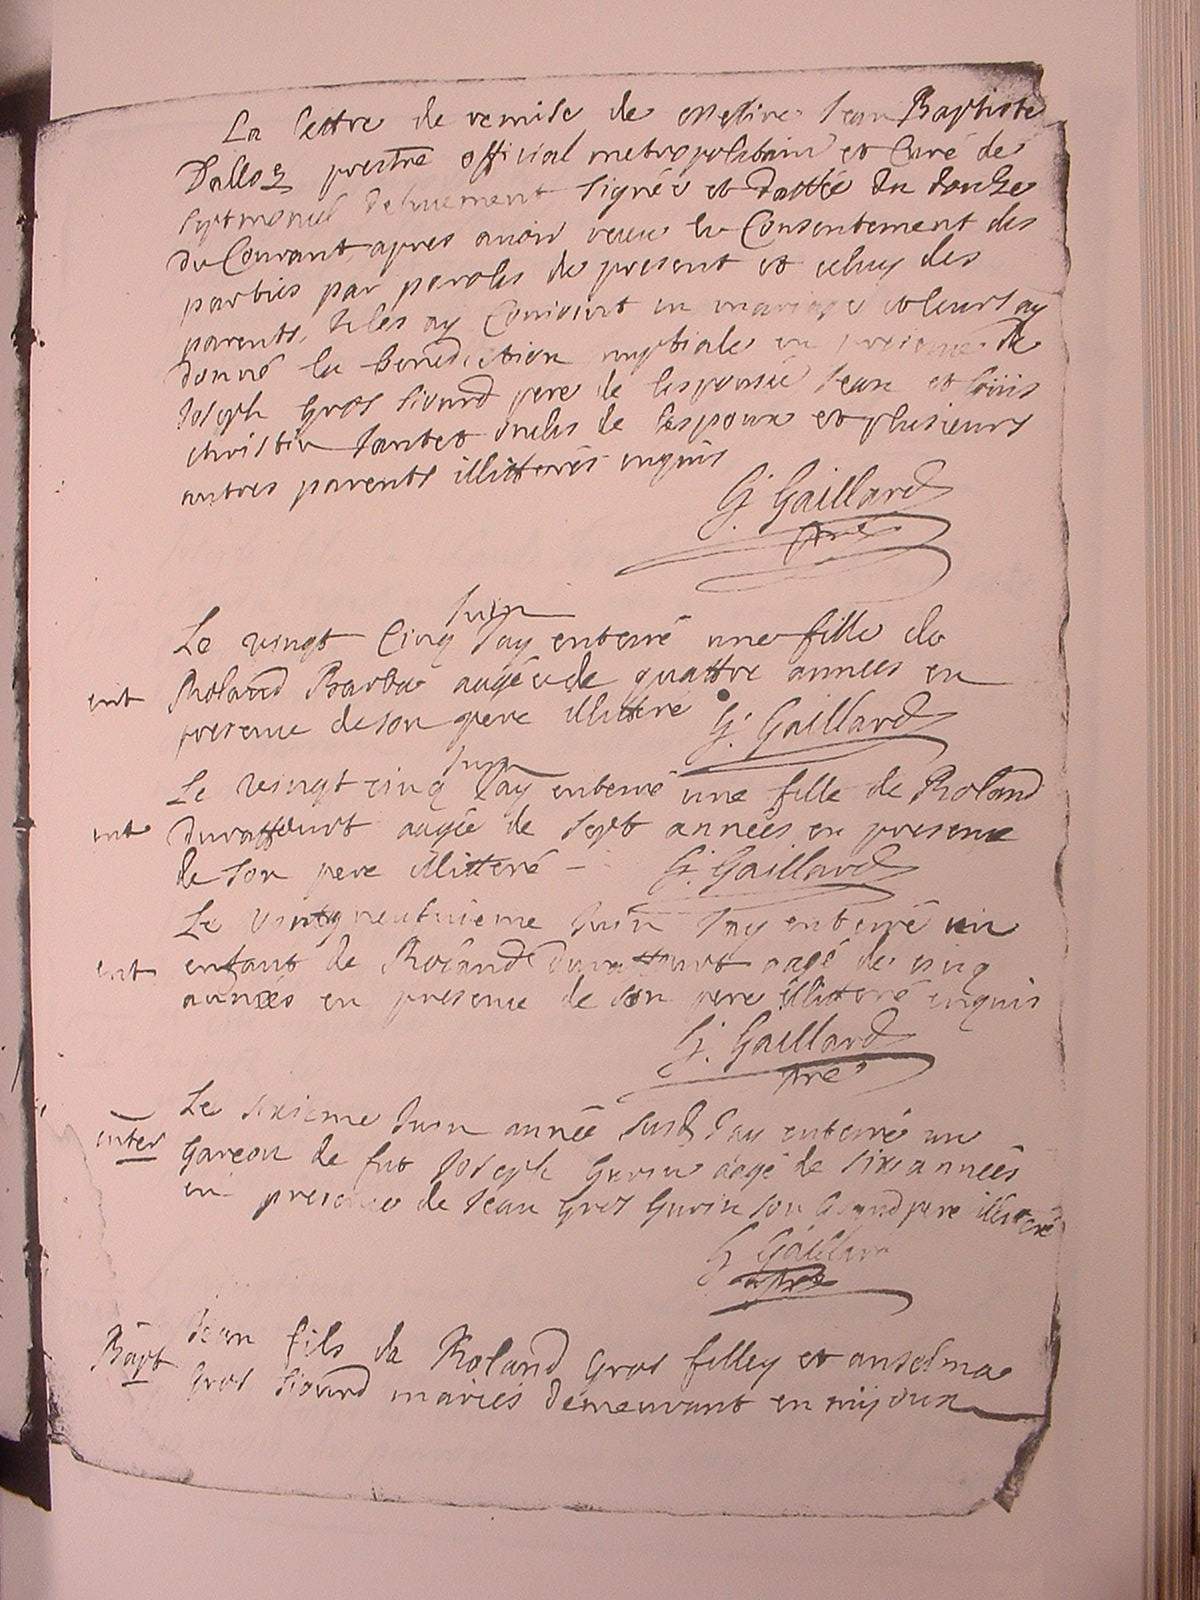 La lettre de remise de messire Jean Baptiste
Dalloz prestre official metropolitain et Curé de
Septmoncel dehuement signée et dattée du douze
du Courant, apres avoir receu le Consentement des
parties par paroles de present et celuy des
parents, Je les ay Conjoint en mariage et leurs ay
donné la benediction nuptiale en presence de
Joseph Gros Sivurd pere de lespousée Jean et Loüis
christin Jantet oncles de lespoux et plusieurs
autres parents illitterés enquis
G. Gaillard
ptre
Juin
Le vingt Cinq J'ay enterré une fille de
ent Roland Barbe augée de quattre années en
presence de son pere illitteré G. Gaillard
Juin
Le vingt cinq J'ay enterré une fille de Roland
ent Duraffourt augée de sept années en presence
de son pere illitteré – G. Gaillard
Le vintgneufvieme Juin J'ay enterré un
ent enfant de Roland Duraffourt aagé de cinq
années en presence de son pere illitteré enquis
G. Gaillard
ptre
Le sixieme Juin année susd J'ay enterré un
enter Garcon de fut Joseph Gurin aagé de six années
en presence de Jean Gros Gurin son Grand pere illitteré
G Gaillard
ptre
Jean fils de Roland Gros filley et anselma
Bapt Gros Sivurd mariés demeurant en mijoux